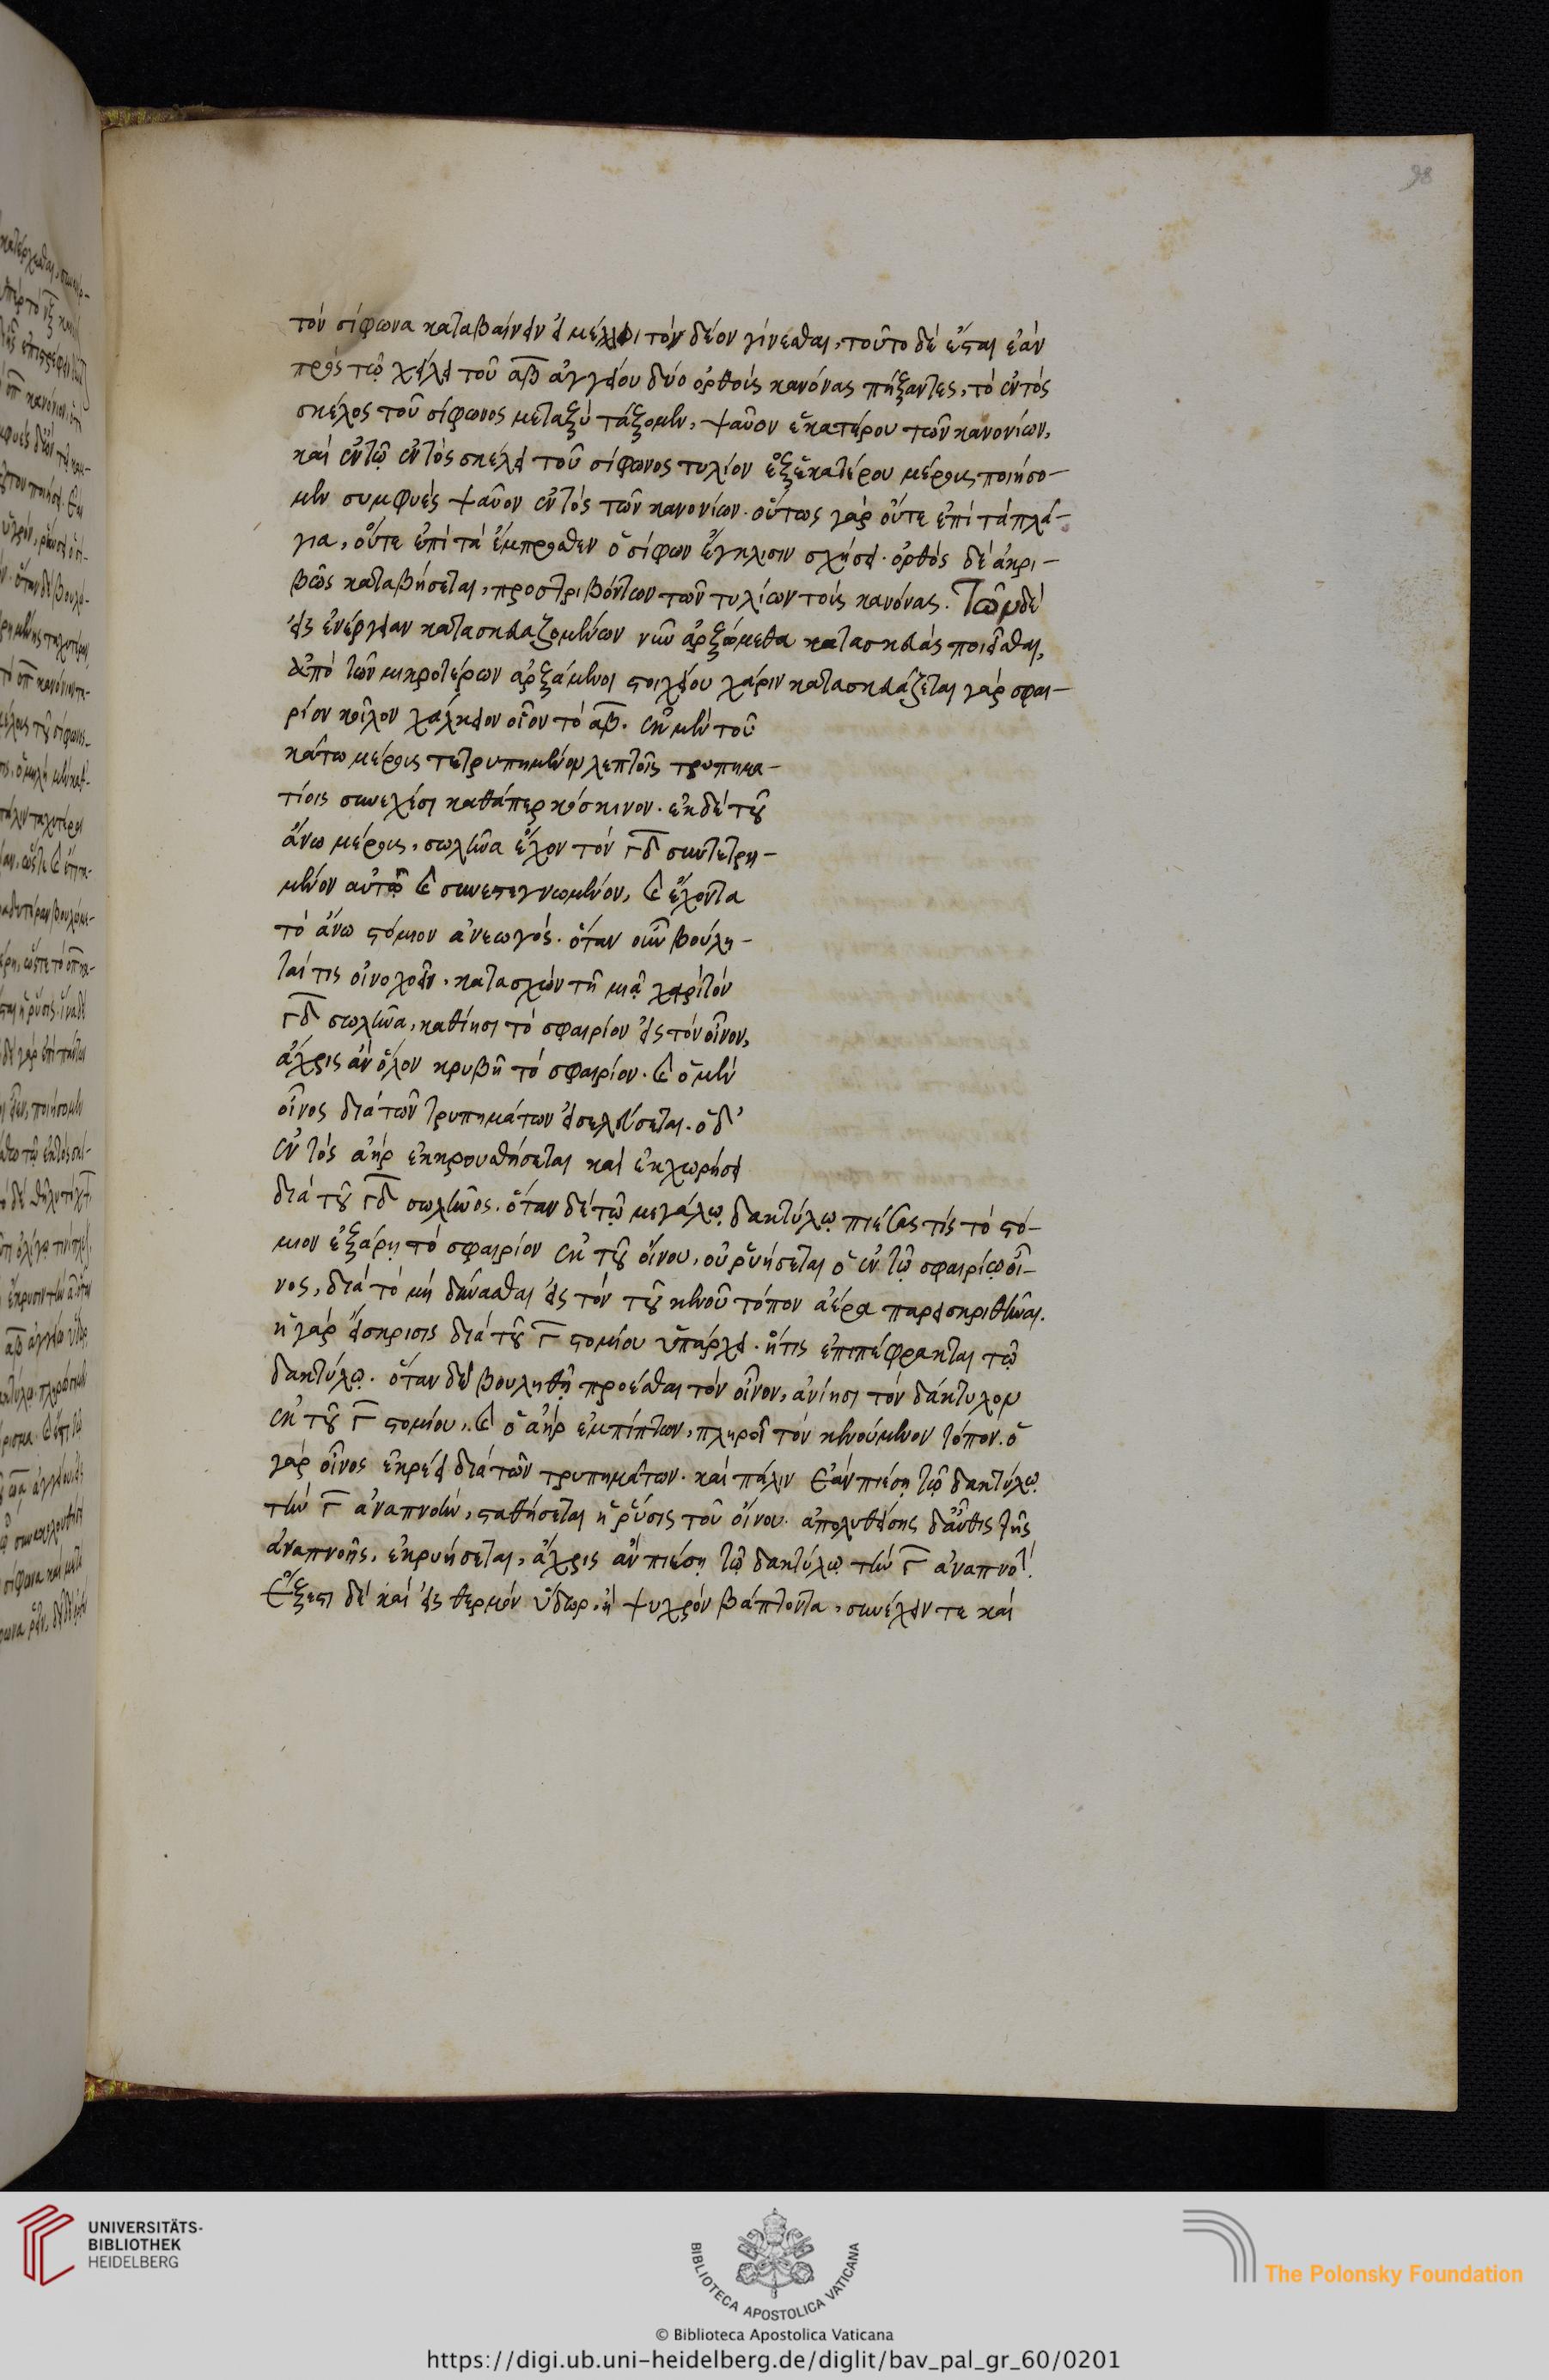 98
τὸν σίφωνα καταβαίνειν εἰ μέλλοι τὸ δέον γίνεσθαι, τοῦτο δὲ ἔσται ἐὰν
πρὸς τῷ χείλει τοῦ αβ ἀγγείου δύο ὀρθοὺς κανόνας πήξαντες, τὸ ἐντὸς
σκέλος τοῦ σίφωνος μεταξὺ τάξομεν, ψαῦον ἑκατέρου τῶν κανονίων,
καὶ ἐν τῷ ἐντὸς σκέλει τοῦ σίφωνος τυλίον ἐξ ἑκατέρου μέρους ποιήσο-
μεν συμφυὲς ψαῦον ἐντὸς τῶν κανονίων. οὕτως γὰρ οὔτε ἐπὶ τὰ πλά-
για, οὔτε ἐπὶ τὰ ἔμπροσθεν ὁ σίφων ἔγκλισιν σχήσει. ὀρθὸς δὲ ἀκρι-
βῶς καταβήσεται, προστριβόντων τῶν τυλίων τοὺς κανόνας. Τῶν δὲ
εἰς ἐνέργειαν κατασκευαζομένων νῦν ἀρξώμεθα κατασκευὰς ποιεῖσθαι,
ἀπὸ τῶν μικροτέρων ἀρξάμενοι στοιχείου χάριν κατασκευάζεται γὰρ σφαι-
ρίον κοῖλον χάλκειον οἷον τὸ αβ. ἐκ μὲν τοῦ
κάτω μέρους τετρυπημένον λεπτοῖς τρυπημα-
τίοις συνεχέσι καθάπερ κόσκινον. ἐκ δὲ τοῦ
ἄνω μέρους, σωλῆνα ἔχον τὸν γδ συντετρη-
μένον αὐτῷ καὶ συνεστεγνωμένον, καὶ ἔχοντα
τὸ ἄνω στόμιον ἀνεωγός. ὅταν οὖν βούλη-
ταί τις οἰνοχοεῖν, κατασχὼν τῇ μιᾷ χειρὶ τὸν
γδ σωλῆνα, καθίησι τὸ σφαιρίον εἰς τὸν οἶνον,
ἄχρις ἂν ὅλον κρυβῇ τὸ σφαιρίον. καὶ ὁ μὲν
οἶνος διὰ τῶν τρυπημάτων εἰσελεύσεται. ὁ δ'
ἐντὸς ἀὴρ ἐκκρουσθήσεται καὶ ἐκχωρήσει
διὰ τοῦ γδ σωλῆνος. ὅταν δὲ τῷ μεγάλῳ δακτύλῳ πιέσας τις τὸ στό-
μιον ἐξάρῃ τὸ σφαιρίον ἐκ τοῦ οἴνου, οὐ ῥυήσεται ὁ ἐν τῷ σφαιρίῳ οἶ-
νος, διὰ τὸ μὴ δύνασθαι εἰς τὸν τοῦ κενοῦ τόπον ἀέρα παρεισκριθῆναι.
ἡ γὰρ εἴσκρισις διὰ τοῦ γ στομίου ὑπάρχει. ἥτις ἐπιπέφρακται τῷ
δακτύλῳ. ὅταν δὲ βουληθῇ προέσθαι τὸν οἶνον, ἀνίησι τὸν δάκτυλον
ἐκ τοῦ γ στομίου. καὶ ὁ ἀὴρ ἐμπίπτων, πληροῖ τὸν κενούμενον τόπον. ὁ
γὰρ οἶνος ἐκρέει διὰ τῶν τρυπημάτων. καὶ πάλιν ἐὰν πιέσῃ τῷ δακτύλῳ
τὴν γ ἀναπνοήν, σταθήσεται ἡ ῥύσις τοῦ οἴνου. ἀπολυθείσης δ' αὖθις τῆς
ἀναπνοῆς, ἐκρυήσεται, ἄχρις ἂν πιέσῃ τῷ δακτύλῳ τὴν γ ἀναπνοήν.
Ἔξεστι δὲ καὶ εἰς θερμὸν ὕδωρ, ἢ ψυχρὸν βάπτοντα, συνέχειν τε καὶ
UNIVERSITÄTS-
BIBLIOTHEK
HEIDELBERG
BIBLIOTECA APOSTOLICA VATICANA
The Polonsky Foundation
© Biblioteca Apostolica Vaticana
https://digi.ub.uni-heidelberg.de/diglit/bav_pal_gr_60/0201